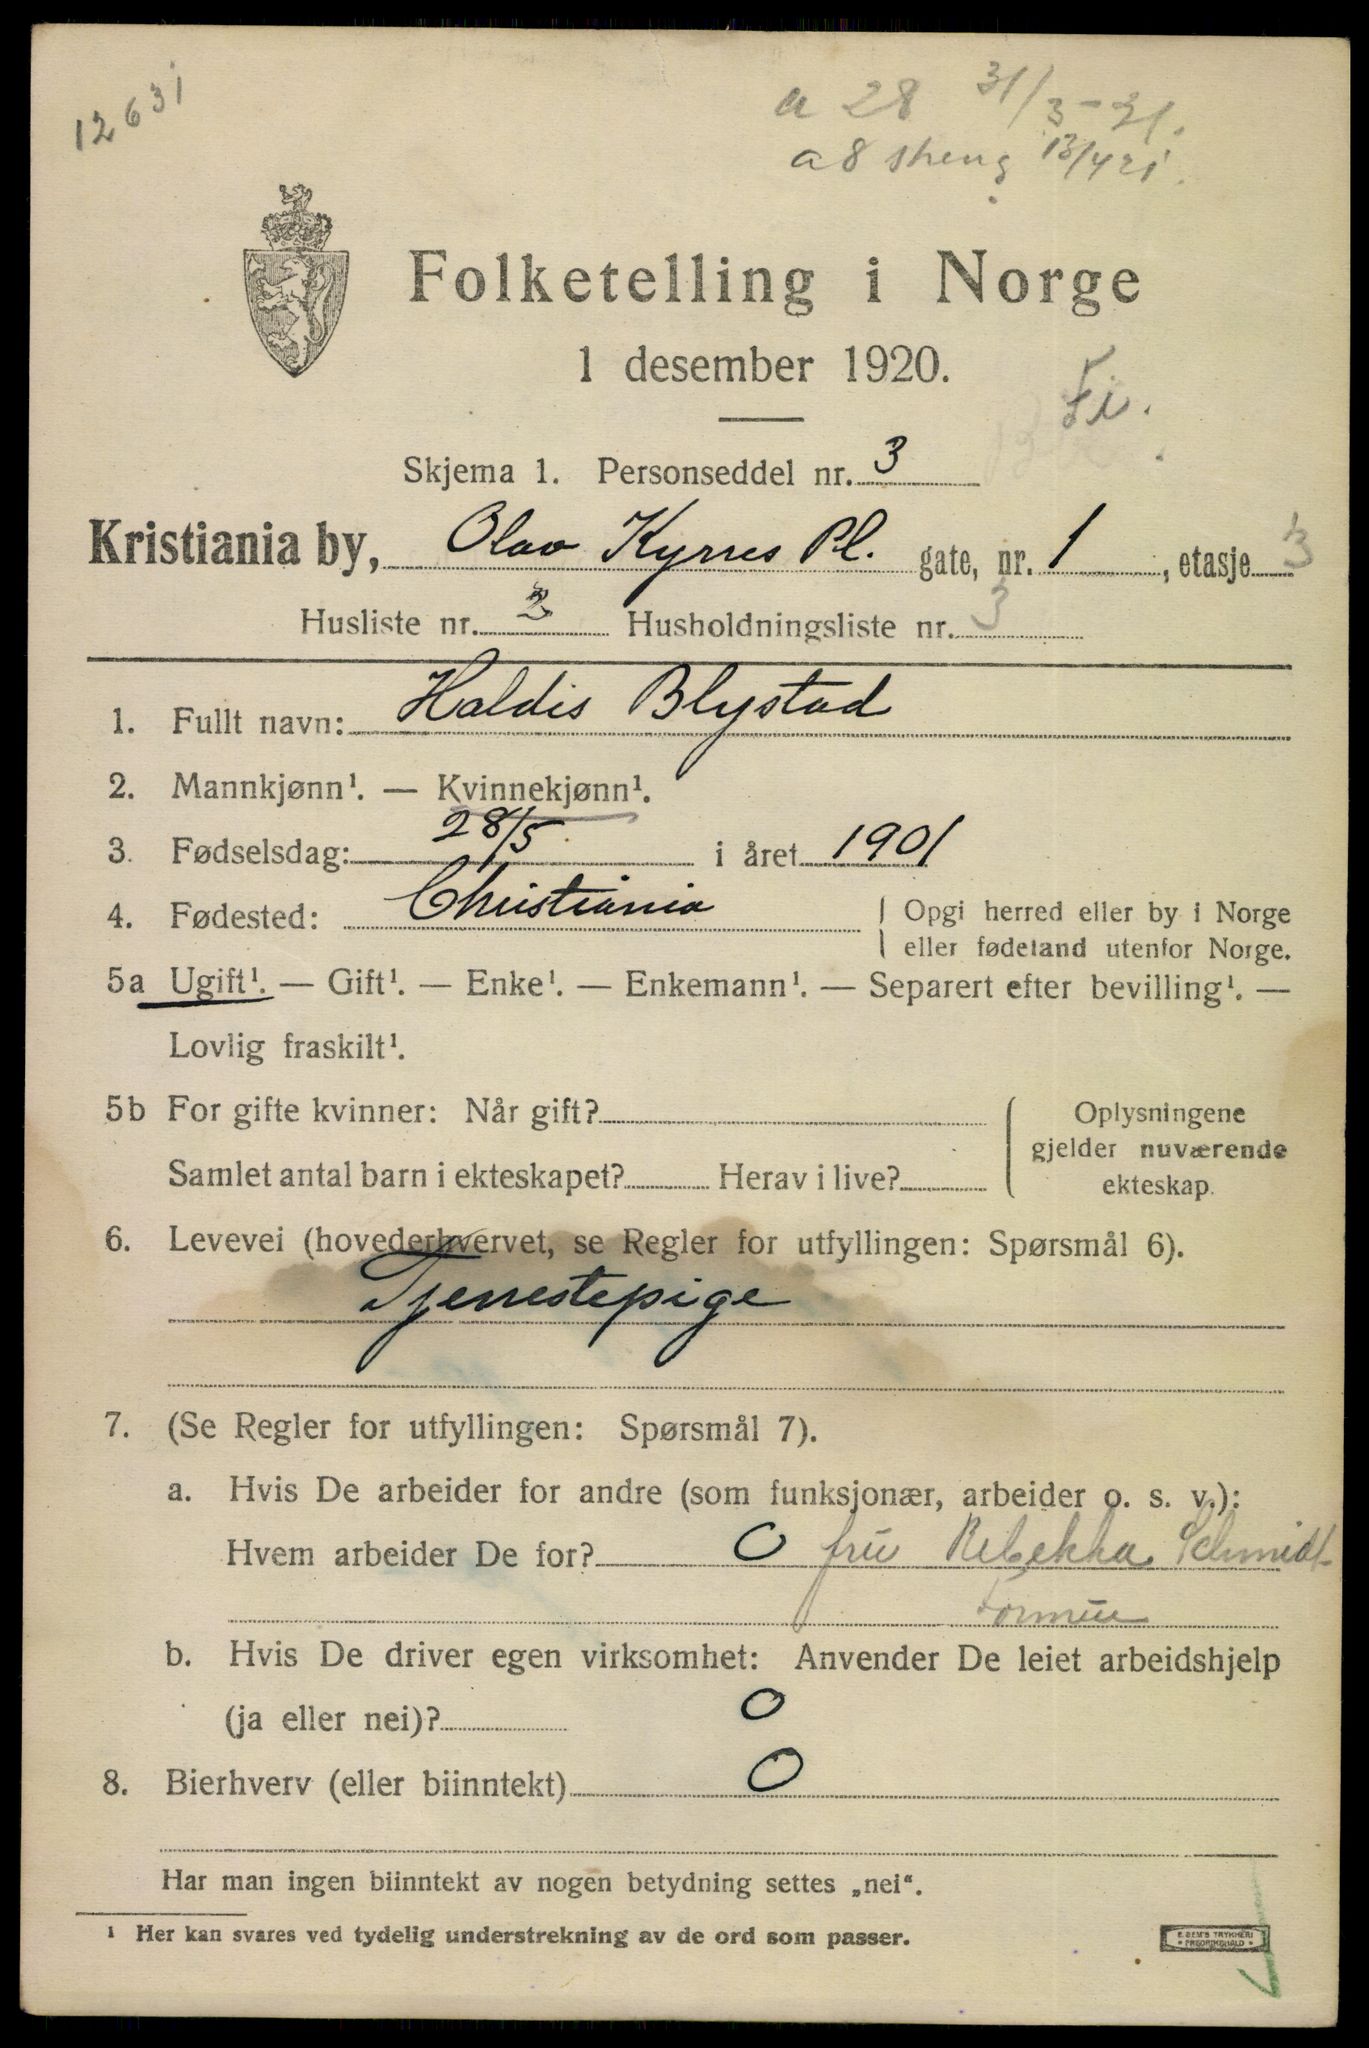 12631
a 28 31/3-21.
a8 13/4 21.
Folketelling i Norge
1 desember 1920.
Fi.
Skjema 1. Personseddel nr. 3
Kristiania by, Olav Kyrres Pl. gate, nr. 1, etasje 3
Husliste nr. 2 Husholdningsliste nr. 3
1. Fullt navn: Haldis Blystad
2. Mannkjønn¹. — Kvinnekjønn¹.
3. Fødselsdag: 28/5 i året 1901
4. Fødested: Christiania
Opgi herred eller by i Norge
eller fødeland utenfor Norge.
5a Ugift¹. — Gift¹. — Enke¹. — Enkemann¹. — Separert efter bevilling¹. —
Lovlig fraskilt¹.
5b For gifte kvinner: Når gift?
Samlet antal barn i ekteskapet? Herav i live?
Oplysningene
gjelder nuværende
ekteskap.
6. Levevei (hovederhvervet, se Regler for utfyllingen: Spørsmål 6).
Tjenestepige
7. (Se Regler for utfyllingen: Spørsmål 7).
a. Hvis De arbeider for andre (som funksjonær, arbeider o. s. v.):
Hvem arbeider De for? O fru Rebekka Schmidt
Formue
b. Hvis De driver egen virksomhet: Anvender De leiet arbeidshjelp
(ja eller nei)? O
8. Bierhverv (eller biinntekt) O
Har man ingen biinntekt av nogen betydning settes „nei“.
¹ Her kan svares ved tydelig understrekning av de ord som passer.
E. SEM'S TRYKKERI
FREDRIKSHALD